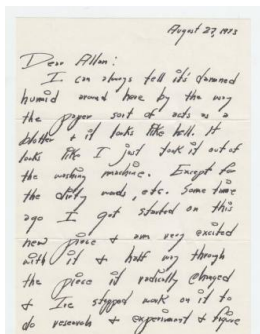 August 27, 1975
Dear Allan:
I can always tell it's damned
humid around here by the way
the paper sort of acts as a
blotter & it looks like hell. It
looks like I just took it out of
the washing machine. Except for
the dirty words, etc. Some time
ago I got started on this
new piece & am very excited
with it & half way through
the piece it radically changed
& I've stopped work on it to
do research & experiment & figure